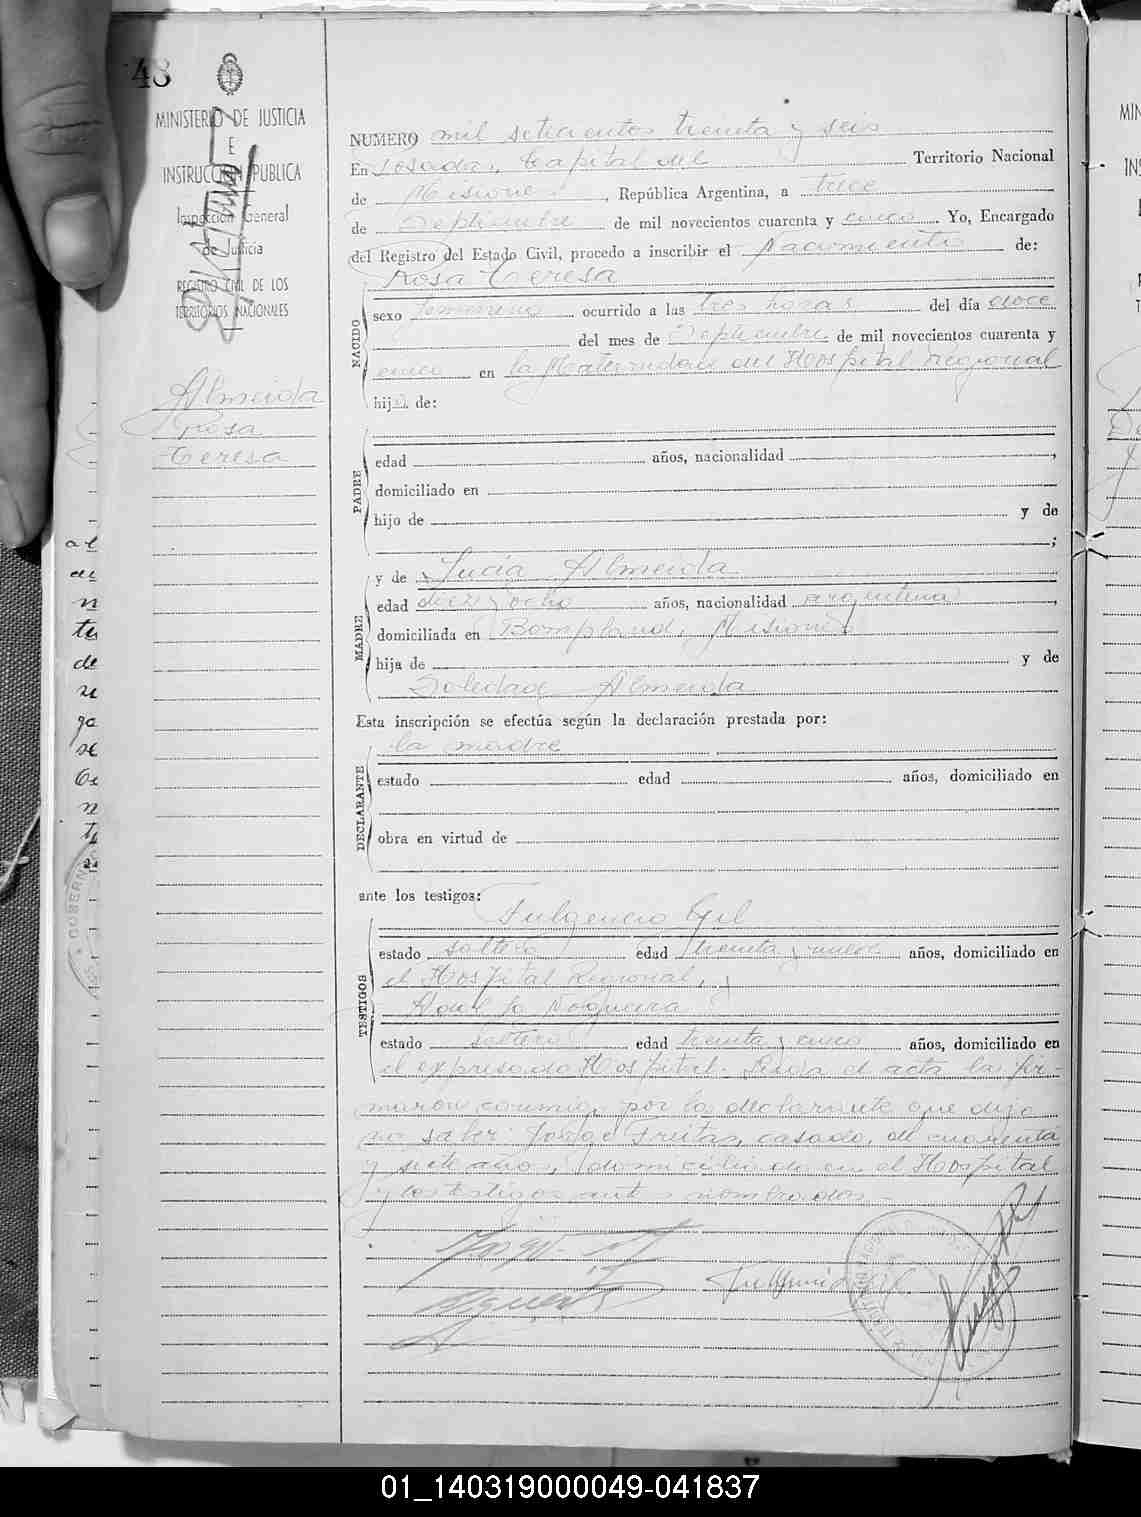 48
MINISTERIO DE JUSTICIA
E
INSTRUCCION PUBLICA
Inspección General
de Justicia
REGISTRO CIVIL DE LOS
TERRITORIOS NACIONALES
Almeida
Rosa
Teresa
NUMERO mil setecientos treinta y seis
En Posadas, Capital del Territorio Nacional
de Misiones, República Argentina, a trece
de Septiembre de mil novecientos cuarenta y cinco. Yo, Encargado
del Registro del Estado Civil, procedo a inscribir el Nacimiento de:
Rosa Teresa
NACIDO
sexo femenino ocurrido a las tres horas del día doce
del mes de Septiembre de mil novecientos cuarenta y
cinco en la Maternidad del Hospital Regional
hija de:
PADRE
edad años, nacionalidad ,
domiciliado en
hijo de y de
;
MADRE
y de Lucía Almeida
edad diez y ocho años, nacionalidad argentina ,
domiciliada en Bompland, Misiones
hija de y de
Soledad Almeida
Esta inscripción se efectúa según la declaración prestada por:
DECLARANTE
la madre
estado edad años, domiciliado en
obra en virtud de
ante los testigos:
TESTIGOS
Fulgencio Gil
estado soltero edad treinta y nueve años, domiciliado en
el Hospital Regional, y
Nogueira
estado soltero edad treinta y cinco años, domiciliado en
el expresado Hospital. Leida el acta la fir-
maron conmigo, por la declarante que dijo
no saber Jorge Freitas, casado, de cuarenta
y siete años, domiciliado en el Hospital
y los testigos antes nombrados.-
01_140319000049-041837